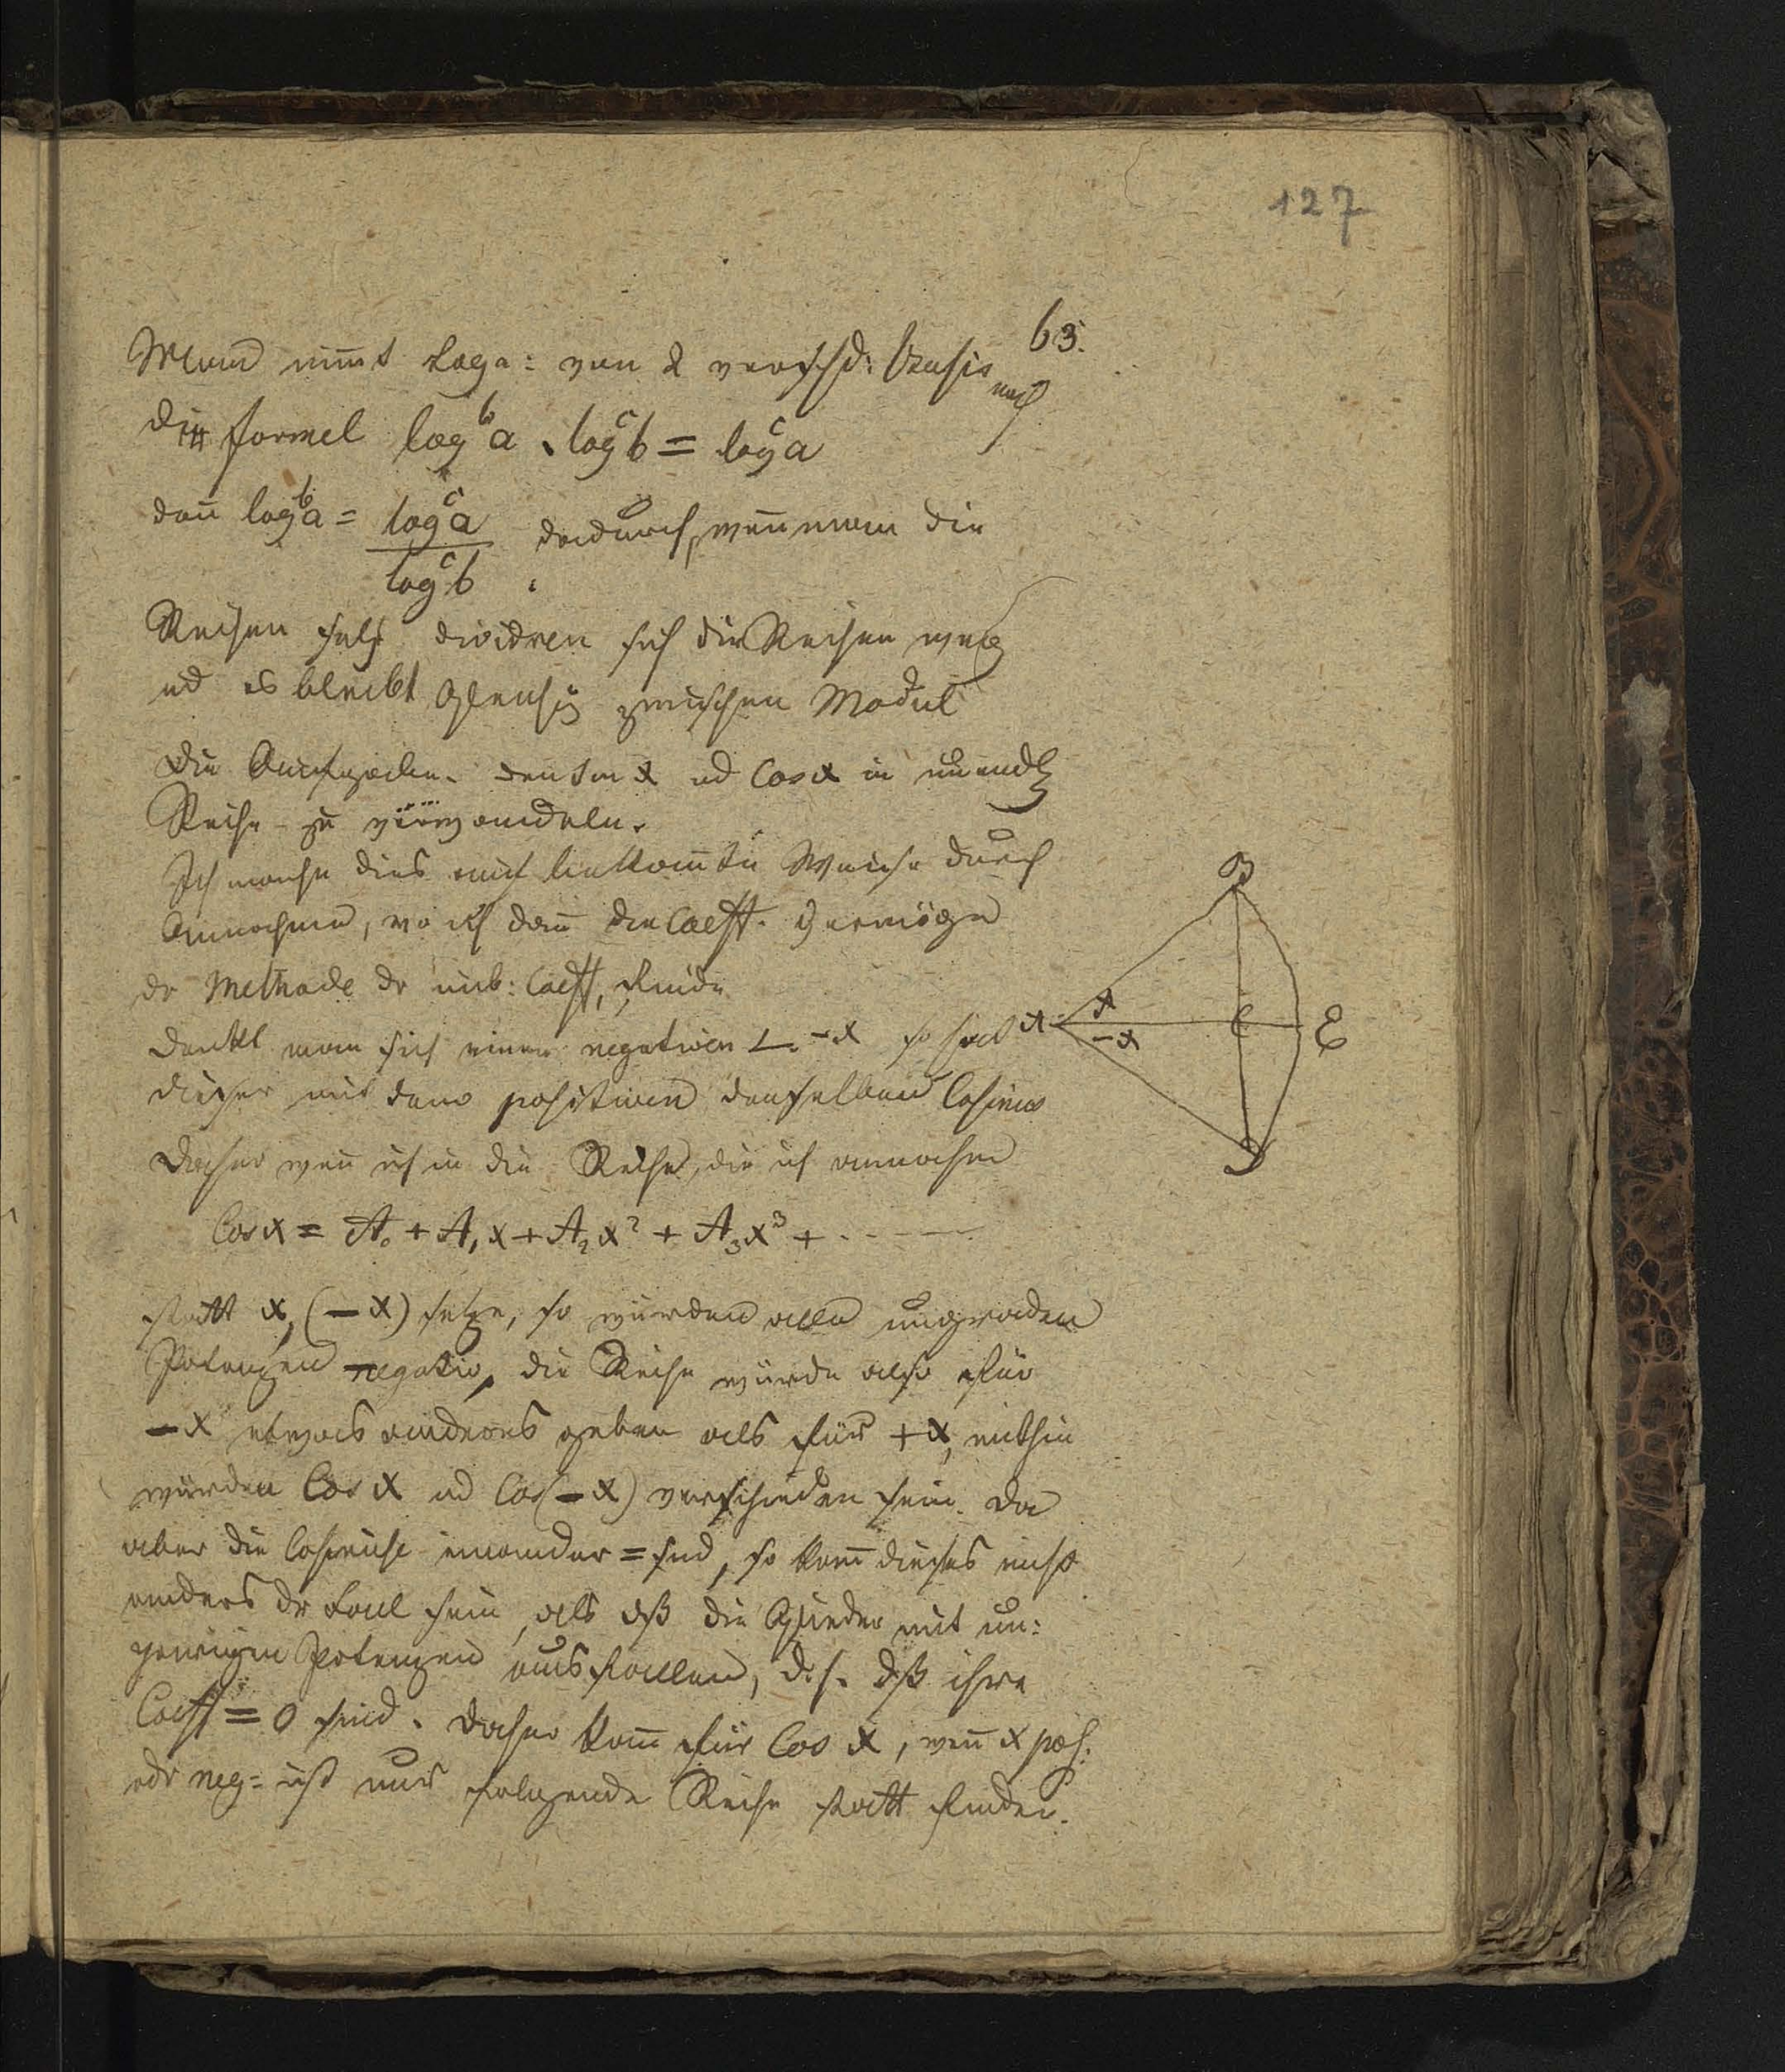 127
63.
Mann nim̄t Loga: von 2 verschd: Basis
nach
die formel log^b a . log^c b = log^c a
dan̄ log^b a = log^c a / log^c b dadurch, wen̄ man die
Reihen dividiren sich die Reihen weg
ud es bleibt zwischen Modul
Die Aufgabe. den Sin x ud Cos x in unendl
Reihe zu verwandeln.
Ich mache dies auf bekan̄te Weise durch
Annahme, wo ich dan̄ die Coefft. Vermöge
dr Methode dr unb: Coefft, finde
B
Denkt man sich einen negativen ∠. -x so hat
A x -x C E
dieser mit dem positiven denselben Cosinus
D
Daher wen̄ ich in die Reihe, die ich annehme
Cos x = A₀ + A₁ x + A₂ x² + A₃ x³ + . . - - -
statt x, (-x) setze, so würden alle ungraden
Potenzen negativ, die Reihe würde also für
-x etwas anderes geben als für +x, mithin
würden Cos x ud Cos(-x) verschieden sein. Da
aber die Cosinuse einander = sind, so kan̄ dieses nicht
anders dr Fall sein, als dß die Glieder mit un:
geraden Potenzen ausfallen, d.h. dß ihre
Coefft = 0 sind. Daher kan̄ für Cos x, wen̄ x pos:
odr neg: ist nur folgende Reihe statt finden.